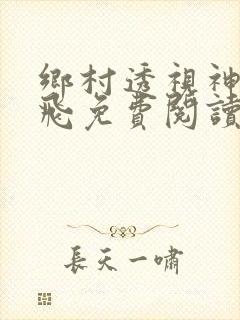 鄉村透視神
飛免費閱讀
長天一嘯